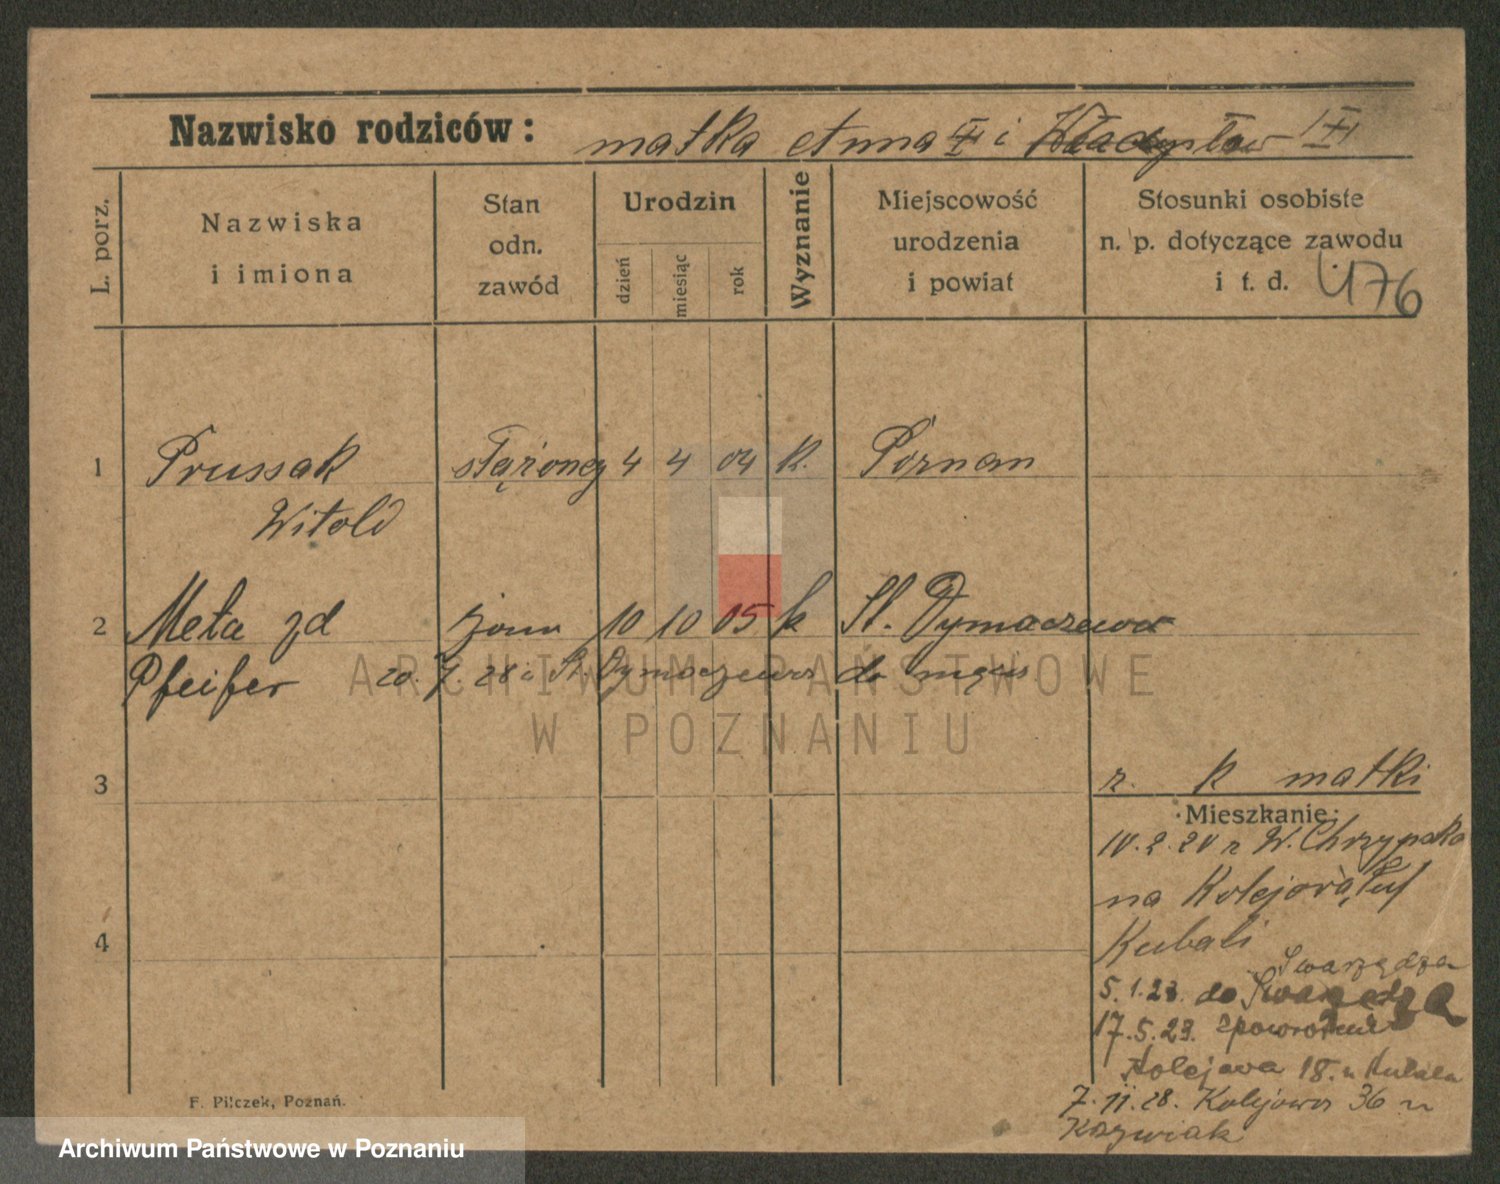 Nazwisko rodziców: matka Anna II i Władysław III
L. porz.
Nazwiska i imiona
Stan odn. zawód
Urodzin
dzień
miesiąc
rok
Wyznanie
Miejscowość urodzenia i powiat
Stosunki osobiste n. p. dotyczące zawodu i t. d.
476
1 Prussak 4 4 04 k. Poznan
Witold
2 Meta zd żona 10 10 05 k St. Dymaczewo
Pfeifer 20. 7. 28 i St. Dymaczewo do męża
3
r. k matki
Mieszkanie:
10.2.20 z W. Chrzypska
na Kolejową
Kubali
4
Swarzędza
5.1.23. do Swarzędza
17.5.23. zpowrotem
Kolejowa 18. u Kubala
7.11.28. Kolejowa 36 u
Kozwiak
F. Pilczek, Poznań.
ARCHIWUM PAŃSTWOWE
W POZNANIU
Archiwum Państwowe w Poznaniu